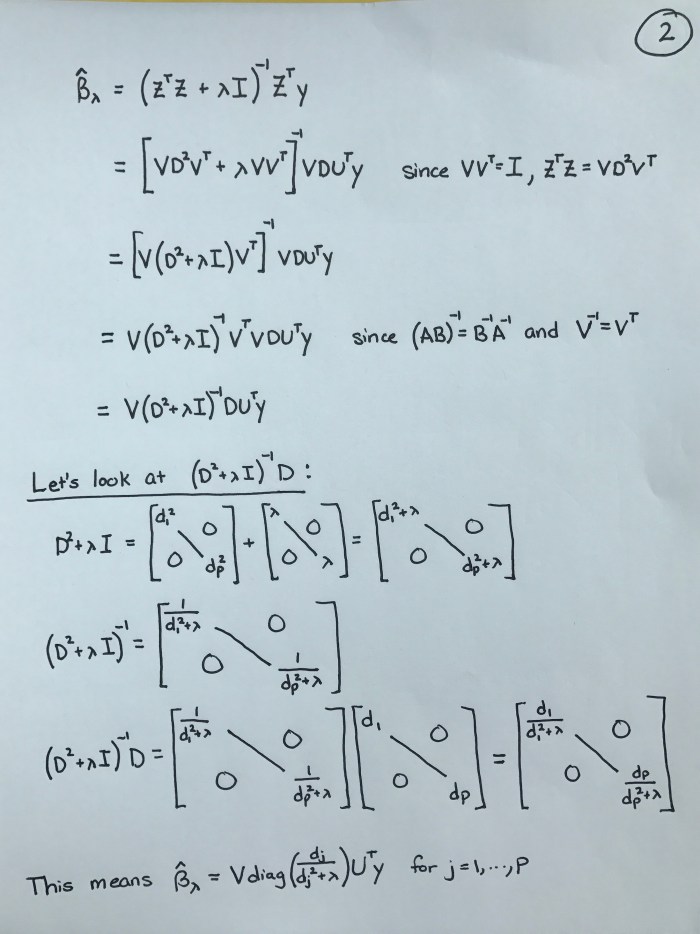 2
β̂_λ = (ZᵀZ + λI)⁻¹Zᵀy
= [VD²Vᵀ + λVVᵀ]⁻¹VDUᵀy since VVᵀ=I, ZᵀZ = VD²Vᵀ
= [V(D²+λI)Vᵀ]⁻¹ VDUᵀy
= V(D²+λI)⁻¹VᵀVDUᵀy since (AB)⁻¹=B⁻¹A⁻¹ and V⁻¹=Vᵀ
= V(D²+λI)⁻¹DUᵀy
Let's look at (D²+λI)⁻¹D:
D²+λI = [d₁² \ 0; 0 \ dp²] + [λ \ 0; 0 \ λ] = [d₁²+λ \ 0; 0 \ dp²+λ]
(D²+λI)⁻¹ = [1/(d₁²+λ) \ 0; 0 \ 1/(dp²+λ)]
(D²+λI)⁻¹D = [1/(d₁²+λ) \ 0; 0 \ 1/(dp²+λ)] [d₁ \ 0; 0 \ dp] = [d₁/(d₁²+λ) \ 0; 0 \ dp/(dp²+λ)]
This means β̂_λ = Vdiag(dj/(dj²+λ))Uᵀy for j=1,...,P